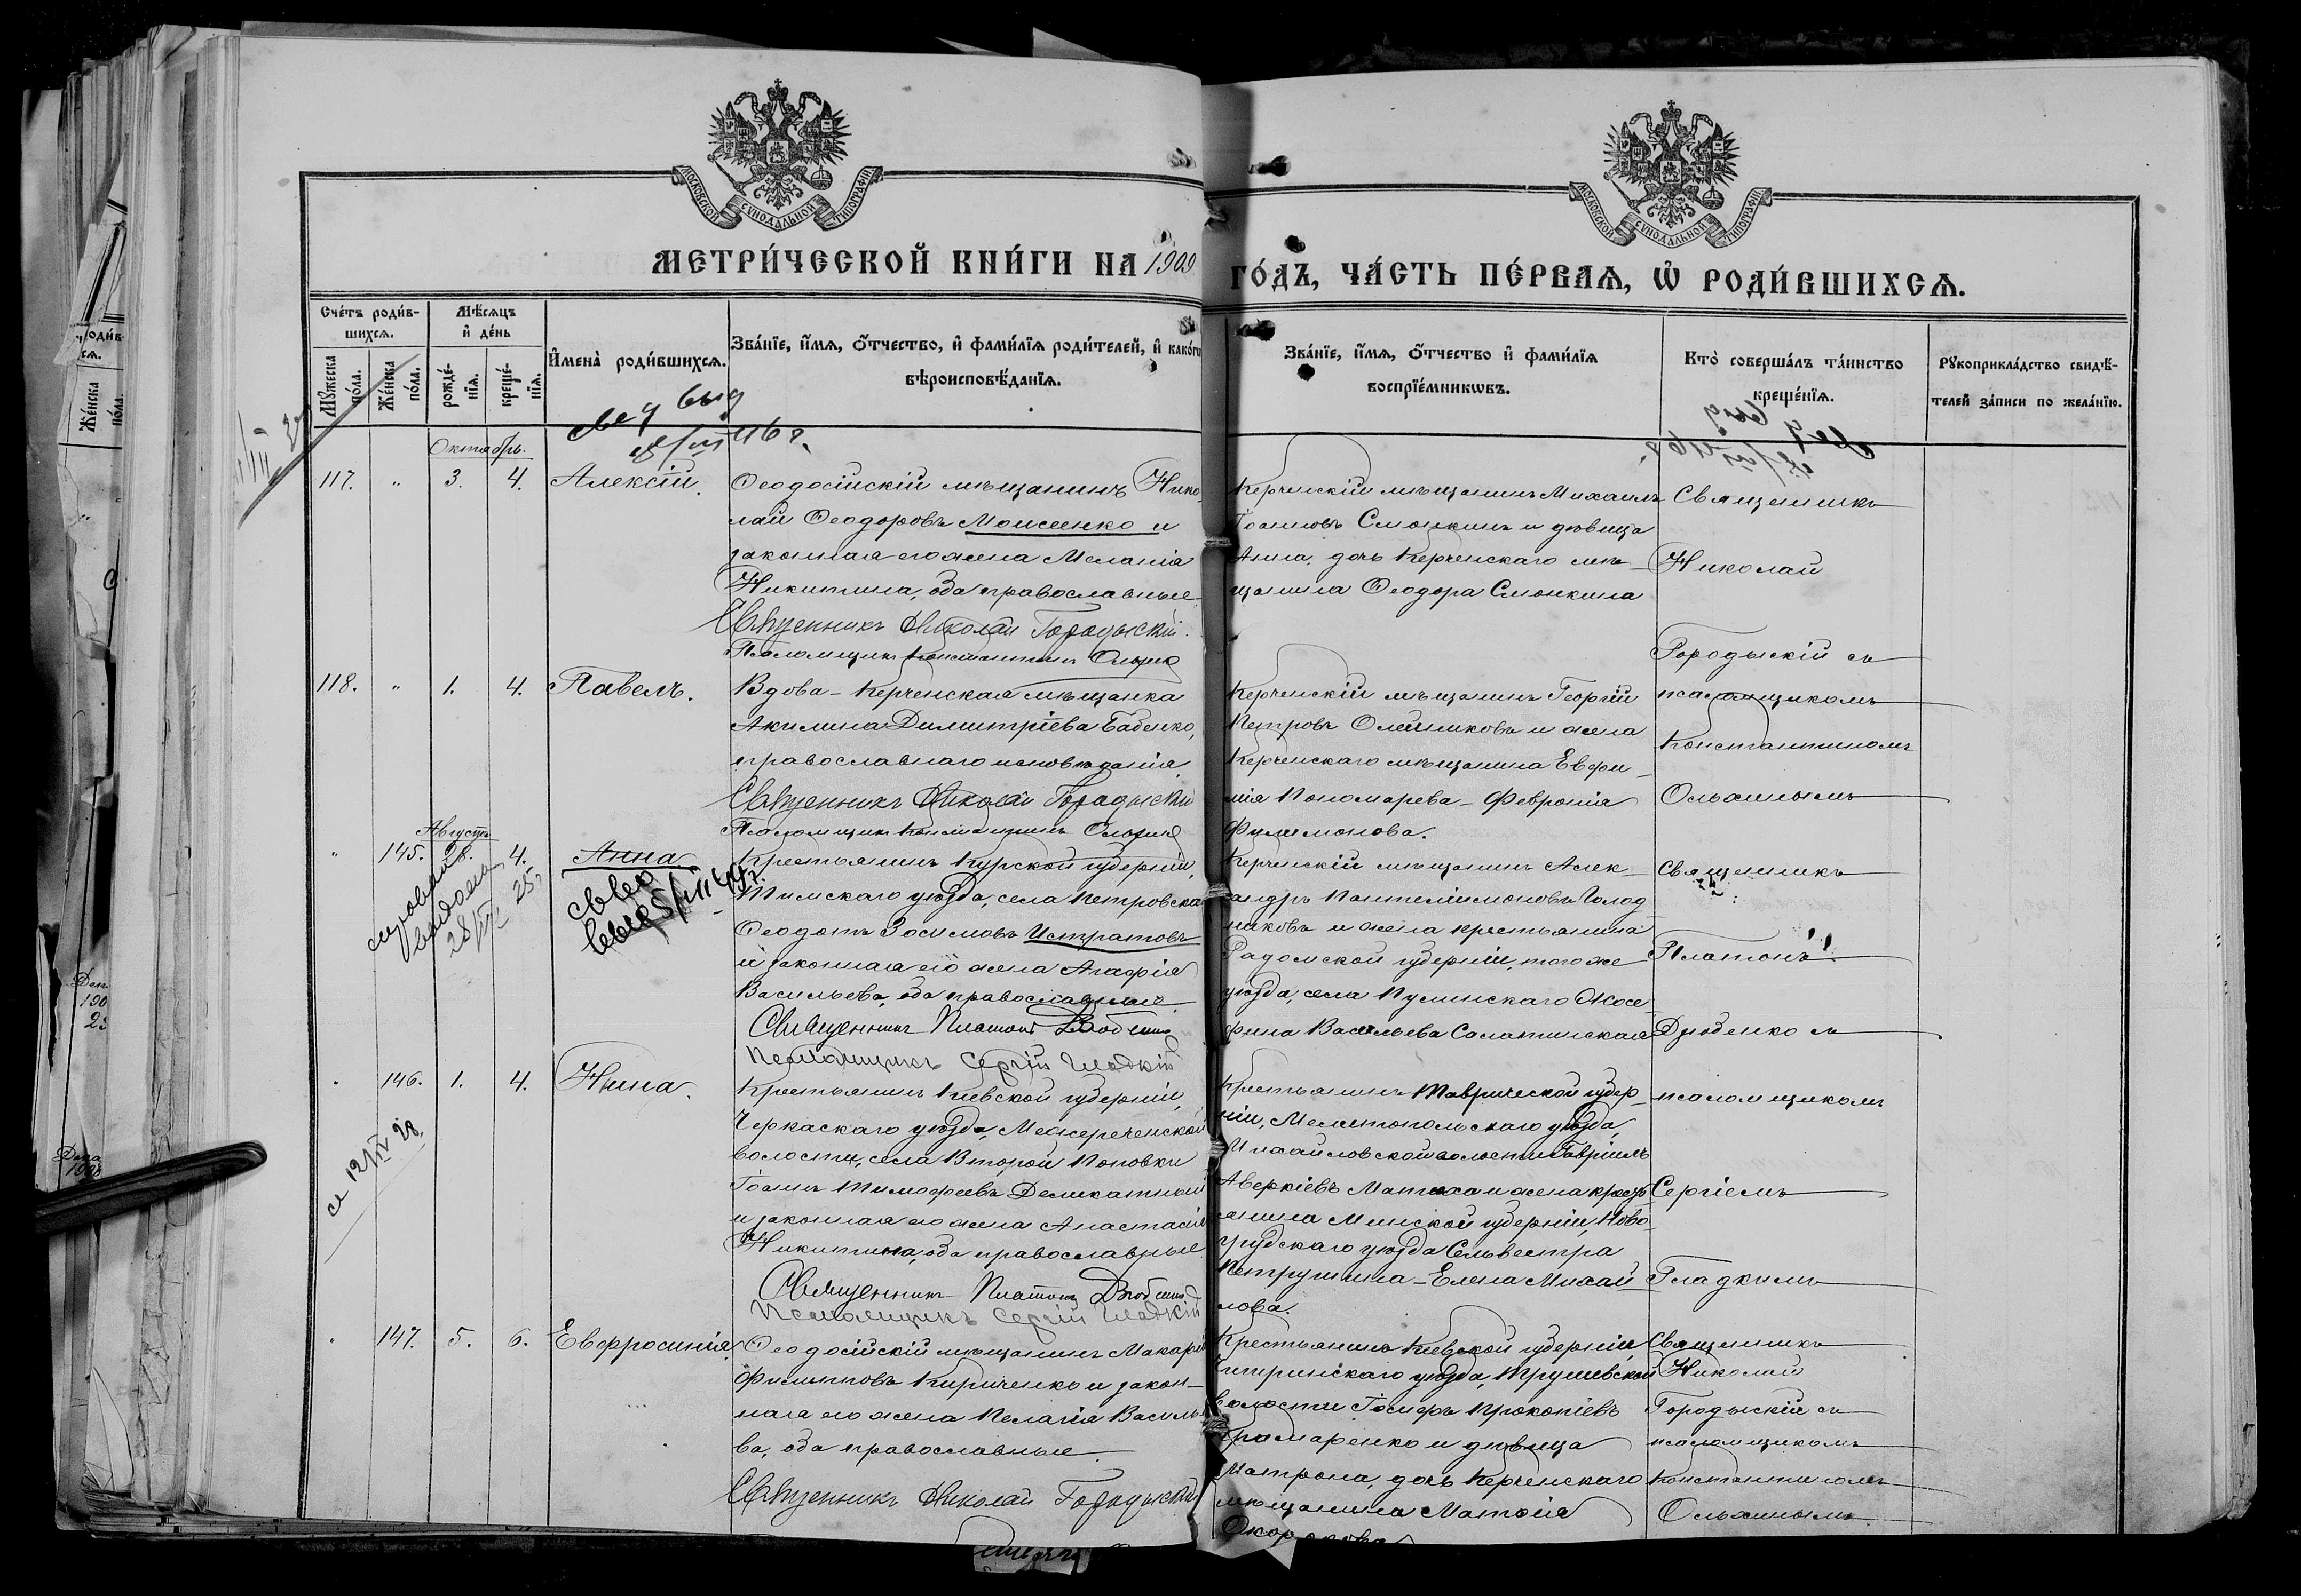 МОСКОВСКОЙ СУНОДАЛЬНОЙ ТИПОГРАФІИ
МОСКОВСКОЙ СУНОДАЛЬНОЙ ТИПОГРАФІИ
МЕТРИ́ЧЕСКОЙ КНИ́ГИ НА 1909 ГО́ДЪ, ЧА́СТЬ ПЕ́РВАѦ, Ѡ҆ РОДИ́ВШИХСѦ.
Сче́тъ роди́в-
шихсѧ.
Мѣ́сѧцъ
и҆ де́нь
Мꙋ́жеска по́ла.
Же́нска по́ла.
рожде́-
нїѧ.
креще́-
нїѧ.
И҆мена̀ роди́вшихсѧ.
Зва́нїе, и҆́мѧ, ѻ҆́тчество, и҆ фами́лїѧ роди́телей, и҆ како́гѡ
вѣроисповѣ́данїѧ.
Зва́нїе, и҆́мѧ, ѻ҆́тчество и҆ фами́лїѧ
воспрїе́мникѡвъ.
Кто̀ соверша́лъ та́инство
креще́нїѧ.
Рꙋкоприкла́дство свидѣ́-
телей за́писи по жела́нїю.
Октябрь.
117. " 3. 4. Алексій.
Ѳеодосійскій мѣщанинъ Нико-
лай Ѳеодоровъ Моисеенко и
законная его жена Меланія
Никитина, оба православные.
Священникъ Николай Городыскій.
Псаломщикъ Константинъ
Керченскій мѣщанинъ Михаилъ
Іоанновъ Смонкинъ и дѣвица
Анна, дочь Керченскаго мѣ-
щанина Ѳеодора Смонкина
Священникъ
Николай
Городыскій съ
псаломщикомъ
Константиномъ
Ольхинымъ
118. " 1. 4. Павелъ.
Вдова - Керченская мѣщанка
Акилина Димитріева Бабенко,
православнаго исповѣданія.
Священникъ Николай Городыскій
Псаломщикъ Константинъ
Керченскій мѣщанинъ Георгій
Петровъ Олейниковъ и жена
Керченскаго мѣщанина Евфи-
мія Пономарева - Февронія
Филимонова.
Августъ
" 145. 28. 4. Анна
Крестьянинъ Курской губерніи,
Тимскаго уѣзда, села Петровска
Ѳеодотъ Зосимовъ Истратовъ
и законная его жена Агафія
Васильева, оба православные.
Священникъ Платонъ Дзюбенко
Псаломщикъ Сергій Гладкій
Керченскій мѣщанинъ Алек-
сандръ Пантелеимоновъ Голод
никовъ и жена крестьянина
Радомской губерніи, того же
уѣзда, села Пулинскаго Жозе
фина Васильева Салатинская
Священникъ
Платонъ
Дзюбенко съ
псаломщикомъ
Сергіемъ
Гладкимъ
" 146. 1. 4. Нина.
Крестьянинъ Кіевской губерніи,
Черкаскаго уѣзда, Межереченской
волости, села Второй Поповки
Іоаннъ Тимофеевъ Деликатный
и законная его жена Анастасія
Никитина, оба православные.
Священникъ Платонъ Дзюбенко
Псаломщикъ Сергій Гладкій
Крестьянинъ Таврической губер-
ніи, Мелитопольскаго уѣзда,
Михайловской волости Гавріилъ
Аверкіевъ и жена кресть
янина Минской губерніи, Ново-
грудскаго уѣзда Сельвестра
Петрушина - Елена Михай
лова.
" 147. 5. 6. Евфросинія.
Ѳеодосійскій мѣщанинъ Макарій
Филипповъ Кириченко и закон-
ная его жена Пелагія Василье
ва, оба православные.
Священникъ Николай Городыскій
Крестьянинъ Кіевской губерніи,
Чигринскаго уѣзда, Трушевской
волости Іосифъ Прокопіевъ
Крамаренко и дѣвица
Матрона, дочь Керченскаго
мѣщанина Матѳія
Священникъ
Николай
Городыскій съ
псаломщикомъ
Константиномъ
Ольхинымъ.